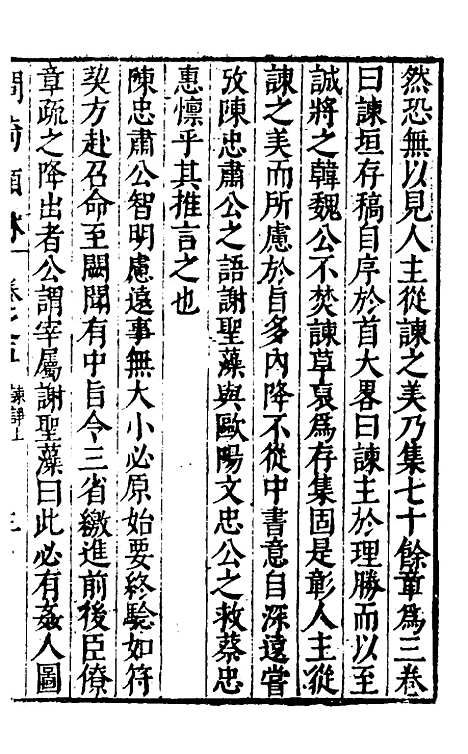 然恐無以見人主從諫之美乃集七十餘章爲三卷
曰諫垣存稿自序於首大畧曰諫主於理勝而以至
誠將之韓魏公不焚諫草裒爲存集固是彰人主從
諫之美而所慮於旨多內降不從中書意自深遠嘗
攷陳忠肅公之語謝聖藻與歐陽文忠公之救蔡忠
惠懍乎其推言之也
陳忠肅公智明慮遠事無大小必原始要終驗如符
契方赴召命至闕聞有中旨令三省繳進前後臣僚
章疏之降出者公謂宰屬謝聖藻曰此必有姦人圖
卷之五 諫諍上 三